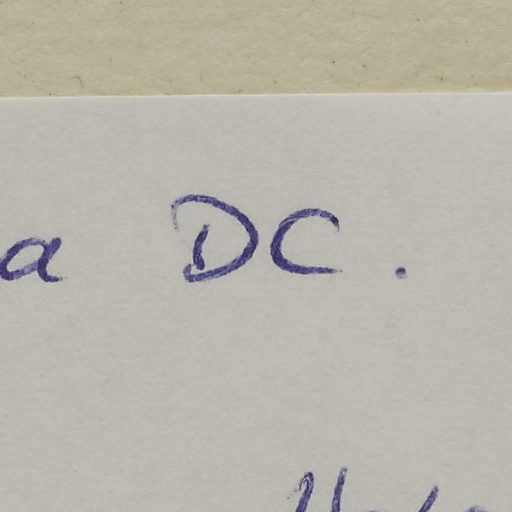 a DC.